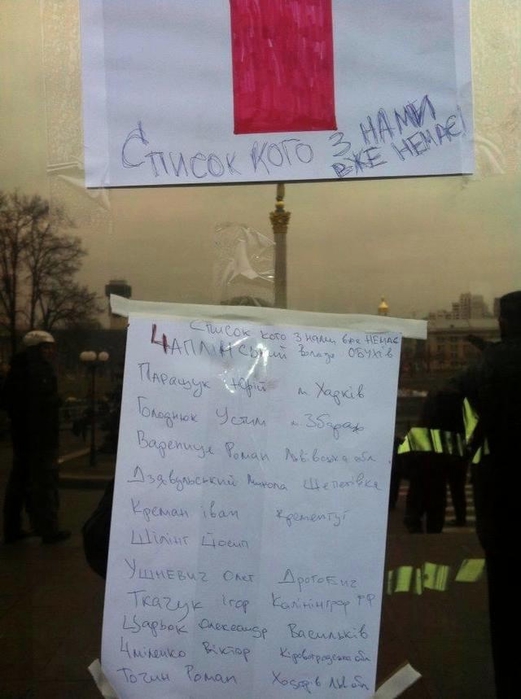 Список кого з нами
вже немає!
Список кого з нами вже немає
Чаплінський Володи Обухів
Паращук Юрій м. Харків
Голоднюк Устим м Збараж
Варениця Роман Львівська обл
Дзявульський Микола Шепетівка
Креман іван Кременчуг
Шілінг Йосип
Ушневич Олег Дрогобич
Ткачук Ігор Калінінград РФ
Царьок Олександр Васильків
Чміленко Віктор Кіровоградська обл
Точин Роман Ходорів Льв обл